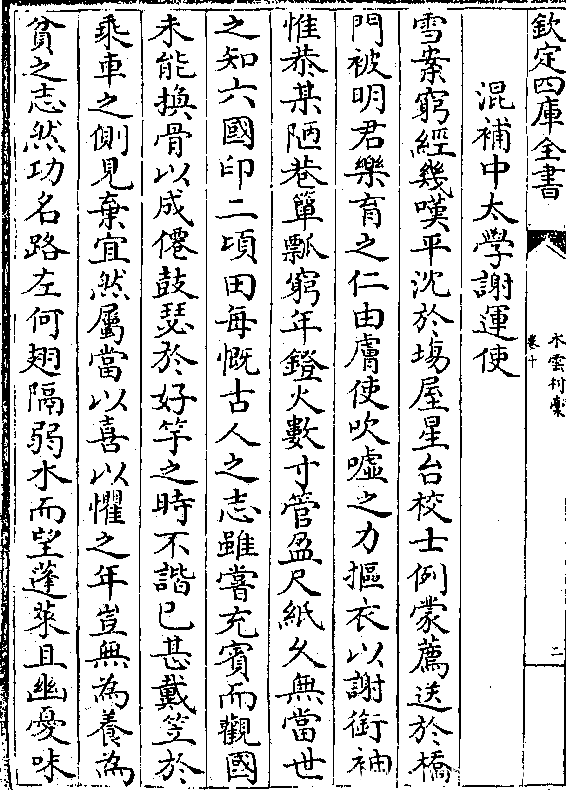 欽定四庫全書
水雲村藁
卷十
二
混補中太學謝運使
雪案窮經幾嘆平沈於場屋星台校士例蒙薦送於橋
門被明君樂育之仁由膚使吹噓之力摳衣以謝銜袖
惟恭某陋巷簞瓢窮年鐙火數寸管盈尺紙久無當世
之知六國印二頃田每慨古人之志雖嘗充賓而觀國
未能換骨以成僊鼓瑟於好竽之時不諧已甚戴笠於
乘車之側見棄宜然屬當以喜以懼之年豈無為養為
貧之志然功名路左何翅隔弱水而望蓬萊且幽憂咪